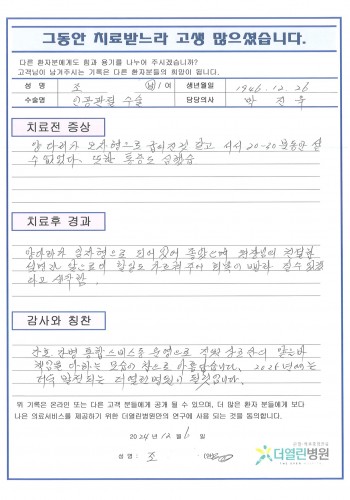 그동안 치료받느라 고생 많으셨습니다.
다른 환자분에게도 힘과 용기를 나누어 주시겠습니까?
고객님이 남겨주시는 기록은 다른 환자분들의 희망이 됩니다.
성 명 조 남/여 생년월일 1946. 12. 26
수술명 인공관절 수술 담당의사 박 진 욱
치료전 증상
양 다리가 오자형으로 서서 20-30분동안 설
수 없었다. 또한 통증도 심했슴
치료후 경과
양다리가 일자형으로 되어있어 좋았으며 원장님의 친절한
앞으로의 가르쳐주어 회복이 빨라 질수 있겠
다고 생각함.
감사와 칭찬
간호 간병 통합서비스를 운영으로 직원 맡은바
책임을 다하는 모습이 참으로 아름답습니다. 2025년에는
더욱 발전되는 더열린병원이 될것입니다.
위 기록은 온라인 또는 다른 고객 분들에게 공개 될 수 있으며, 더 많은 환자 분들에게 보다
나은 의료서비스를 제공하기 위한 더열린병원만의 연구에 사용 되는 것을 동의합니다.
2024 년 12 월 6 일
성 명 : 조 (인)
더열린병원